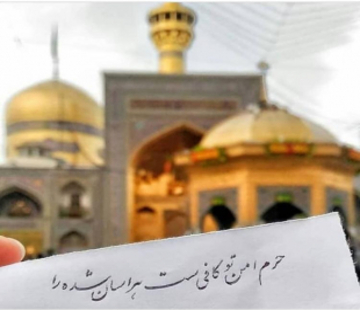 حرم امن تو کافی ست هراسان شده را